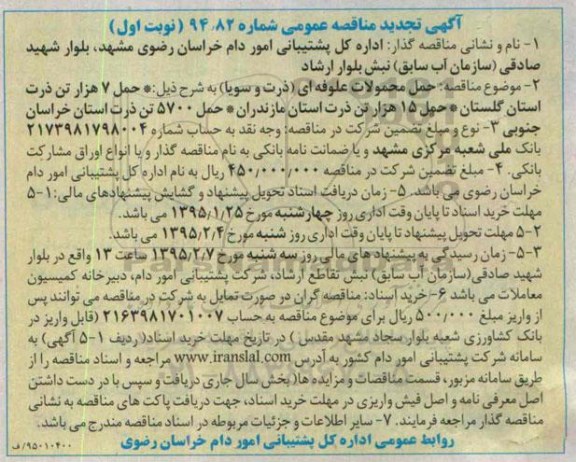 آگهی تجدید مناقصه عمومی شماره ۹۴/۸۲ ( نوبت اول)
۱- نام و نشانی مناقصه گذار: اداره کل پشتیبانی امور دام خراسان رضوی مشهد، بلوار شهید
صادقی (سازمان آب سابق) نبش بلوار ارشاد
۲- موضوع مناقصه: حمل محمولات علوفه ای (ذرت و سویا) به شرح ذیل: * حمل ۷ هزار تن ذرت
استان گلستان * حمل ۱۵ هزار تن ذرت استان مازندران * حمل ۵۷۰۰ تن ذرت استان خراسان
جنوبی ۳- نوع و مبلغ تضمین شرکت در مناقصه: وجه نقد به حساب شماره ۲۱۷۳۹۸۱۷۹۸۰۰۴
بانک ملی شعبه مرکزی مشهد و یا ضمانت نامه بانکی به نام مناقصه گذار و یا انواع اوراق مشارکت
بانکی. ۴- مبلغ تضمین شرکت در مناقصه ۴۵۰/۰۰۰/۰۰۰ ریال به نام اداره کل پشتیبانی امور دام
خراسان رضوی می باشد. ۵- زمان دریافت اسناد تحویل پیشنهاد و گشایش پیشنهادهای مالی: ۱-۵
مهلت خرید اسناد تا پایان وقت اداری روز چهارشنبه مورخ ۱۳۹۵/۱/۲۵ می باشد.
۲-۵ مهلت تحویل پیشنهاد تا پایان وقت اداری روز شنبه مورخ ۱۳۹۵/۲/۴ می باشد.
۳-۵- زمان رسیدگی به پیشنهاد های مالی روز سه شنبه مورخ ۱۳۹۵/۲/۷ ساعت ۱۳ واقع در بلوار
شهید صادقی(سازمان آب سابق) نبش تقاطع ارشاد، شرکت پشتیبانی امور دام، دبیرخانه کمیسیون
معاملات می باشد ۶-خرید اسناد: مناقصه گران در صورت تمایل به شرکت در مناقصه می توانند پس
از واریز مبلغ ۵۰۰/۰۰۰ ریال برای موضوع مناقصه به حساب ۲۱۶۳۹۸۱۷۰۱۰۰۷ (قابل واریز در
بانک کشاورزی شعبه بلوار سجاد مشهد مقدس ) در تاریخ مهلت خرید اسناد( ردیف ۱-۵ آگهی) به
سامانه شرکت پشتیبانی امور دام کشور به آدرس www.iranslal.com مراجعه و اسناد مناقصه را از
طریق سامانه مزبور، قسمت مناقصات و مزایده ها( بخش سال جاری دریافت و سپس با در دست داشتن
اصل معرفی نامه و اصل فیش واریزی در مهلت خرید اسناد، جهت دریافت پاکت های مناقصه به نشانی
مناقصه گذار مراجعه فرمایند. ۷- سایر اطلاعات و جزئیات مربوطه در اسناد مناقصه مندرج می باشد.
روابط عمومی اداره کل پشتیبانی امور دام خراسان رضوی
۹۵۰۱۰۴۰۰/ف